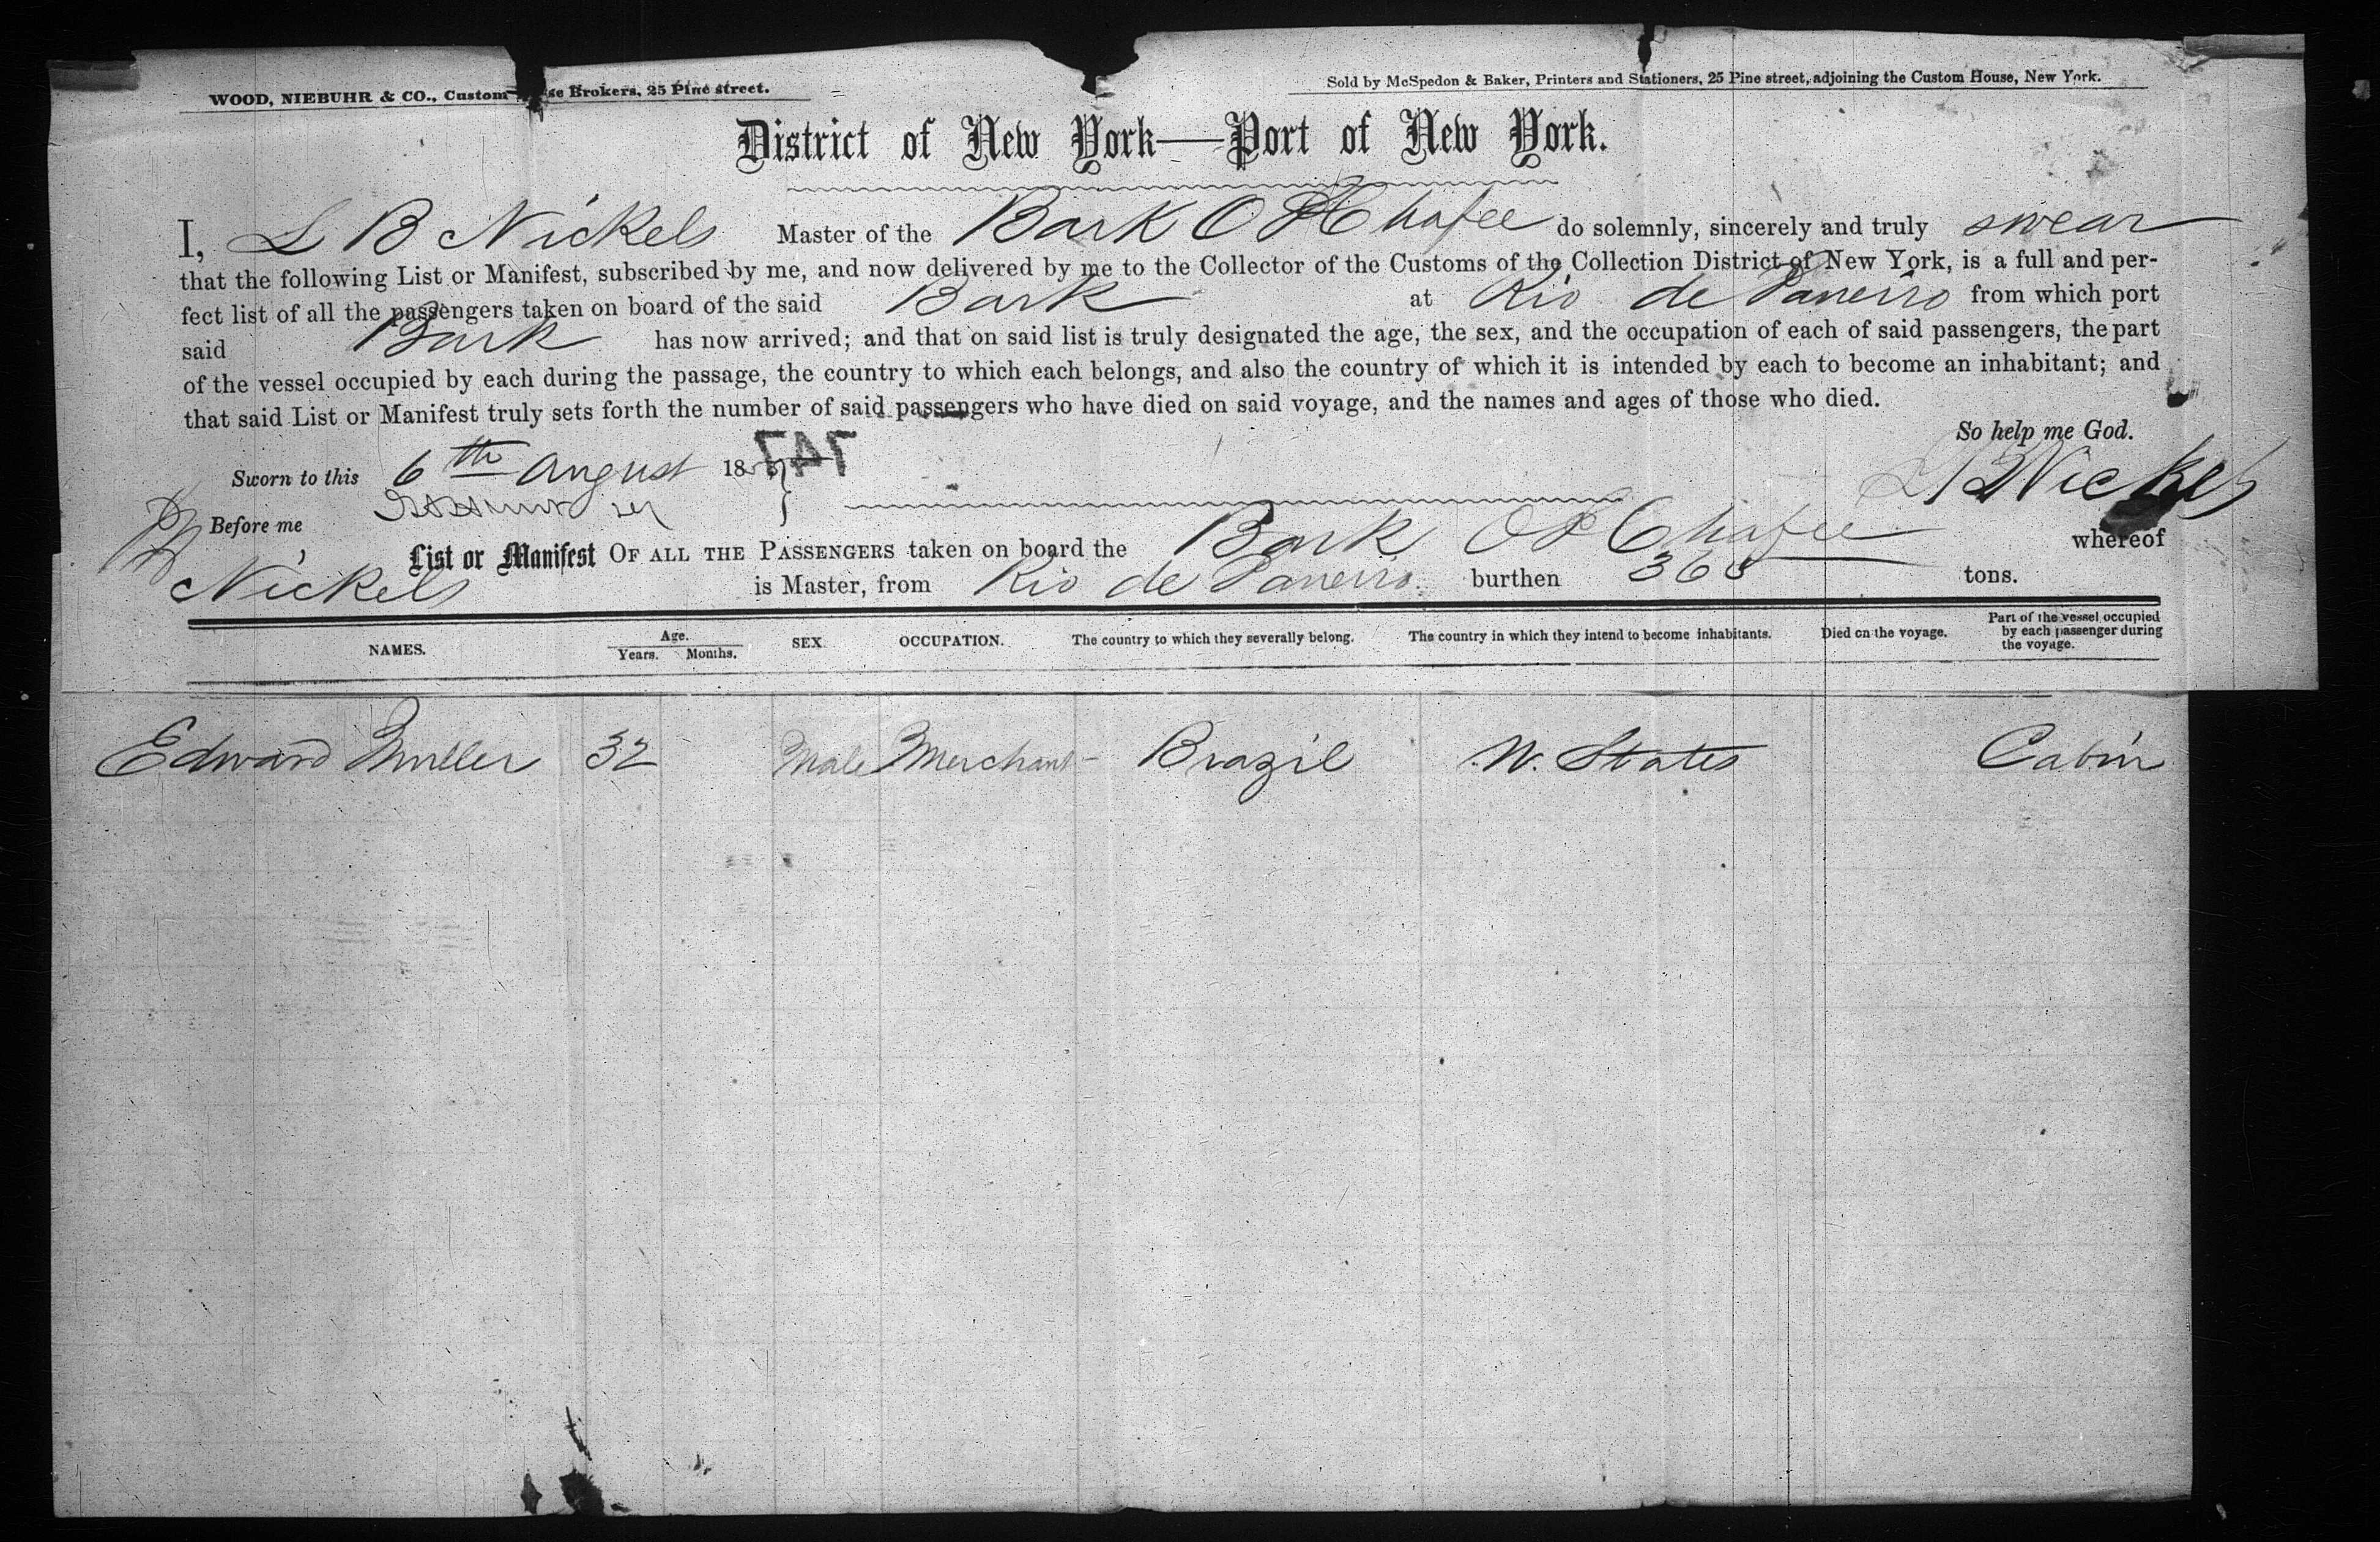 WOOD, NIEBUHR & CO., Custom se Brokers, 25 Pine street.
Sold by McSpedon & Baker, Printers and Stationers, 25 Pine street, adjoining the Custom House, New York.
District of New York—Port of New York.
I, L B Nickels Master of the Bark O Chafee do solemnly, sincerely and truly swear
that the following List or Manifest, subscribed by me, and now delivered by me to the Collector of the Customs of the Collection District of New York, is a full and per-
fect list of all the passengers taken on board of the said Bark at Rio de Janeiro from which port
said Bark has now arrived; and that on said list is truly designated the age, the sex, and the occupation of each of said passengers, the part
of the vessel occupied by each during the passage, the country to which each belongs, and also the country of which it is intended by each to become an inhabitant; and
that said List or Manifest truly sets forth the number of said passengers who have died on said voyage, and the names and ages of those who died.
So help me God.
Sworn to this 6th August 18 747
L B Nickels
Before me
List or Manifest OF ALL THE PASSENGERS taken on board the Bark O Chafee whereof
Nickels is Master, from Rio de Janeiro burthen 368 tons.
NAMES. Age. Years. Months. SEX. OCCUPATION. The country to which they severally belong. The country in which they intend to become inhabitants. Died on the voyage. Part of the vessel occupied by each passenger during the voyage.
Edward Muller 32 Male Merchant Brazil U. States Cabin